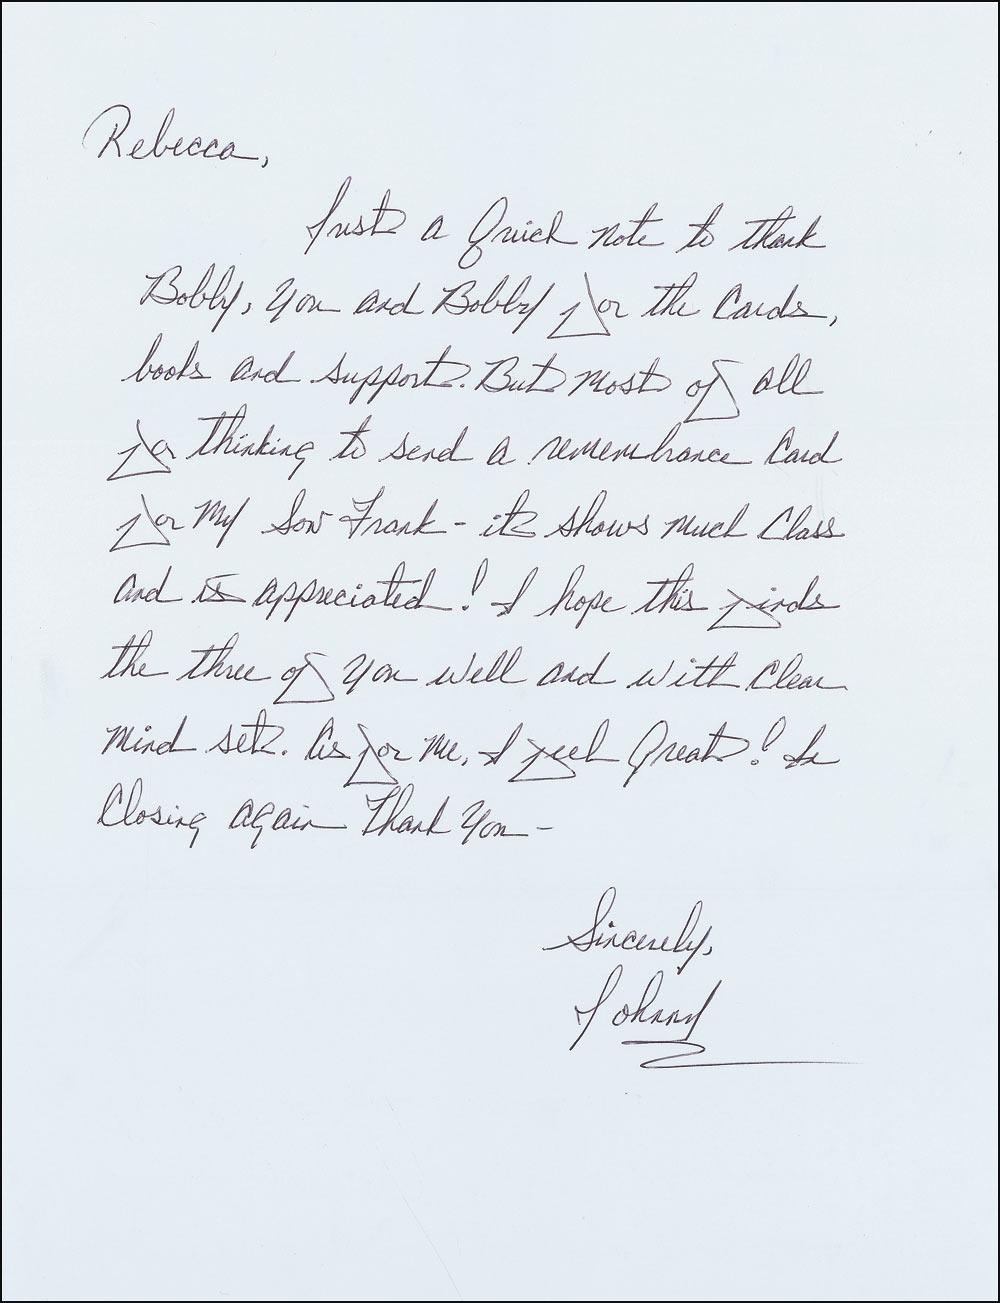 Rebecca,
Just a Quick note to thank
Bobby, You and Bobby for the Cards,
books and support. But most of all
for thinking to send a remembrance Card
for My Son Frank - it shows much Class
and is appreciated! I hope this finds
the three of You well and with Clear
Mind set. As for Me, I feel Great! In
Closing again Thank You -
Sincerely,
Johnny